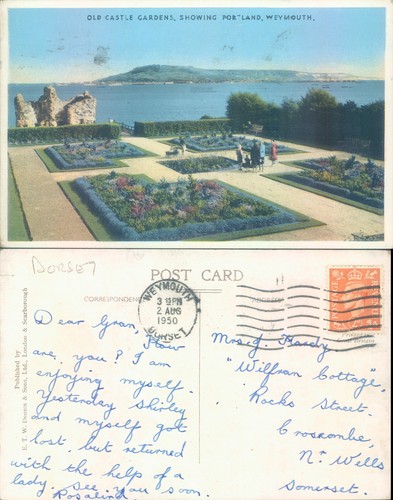 OLD CASTLE GARDENS, SHOWING PORTLAND, WEYMOUTH,
DORSET
POST CARD
CORRESPONDENCE
WEYMOUTH
3 PM
2 AUG
1950
DORSET
Published by
E. T. W. Dennis & Sons, Ltd., London & Scarborough
Dear Gran, How
are you? I am
enjoying myself.
Yesterday Shirley
and myself got
lost but returned
with the help of a
lady. See you soon
Rosalind.
Mrs J. Hardy
"Wilfran Cottage",
Rocks Street.
Croscombe,
Nr Wells
Somerset.